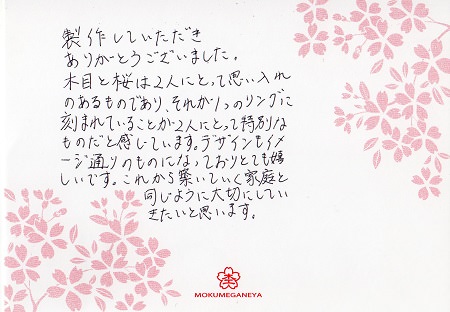 製作していただき
ありがとうございました。
木目と桜は2人にとって思い入れ
のあるものであり、それが1つのリングに
刻まれていることが2人にとって特別な
ものだと感じています。デザインもイメ
ージ通りのものになっておりとても嬉
しいです。これから築いていく家庭と
同じように大切にしてい
きたいと思います。
MOKUMEGANEYA